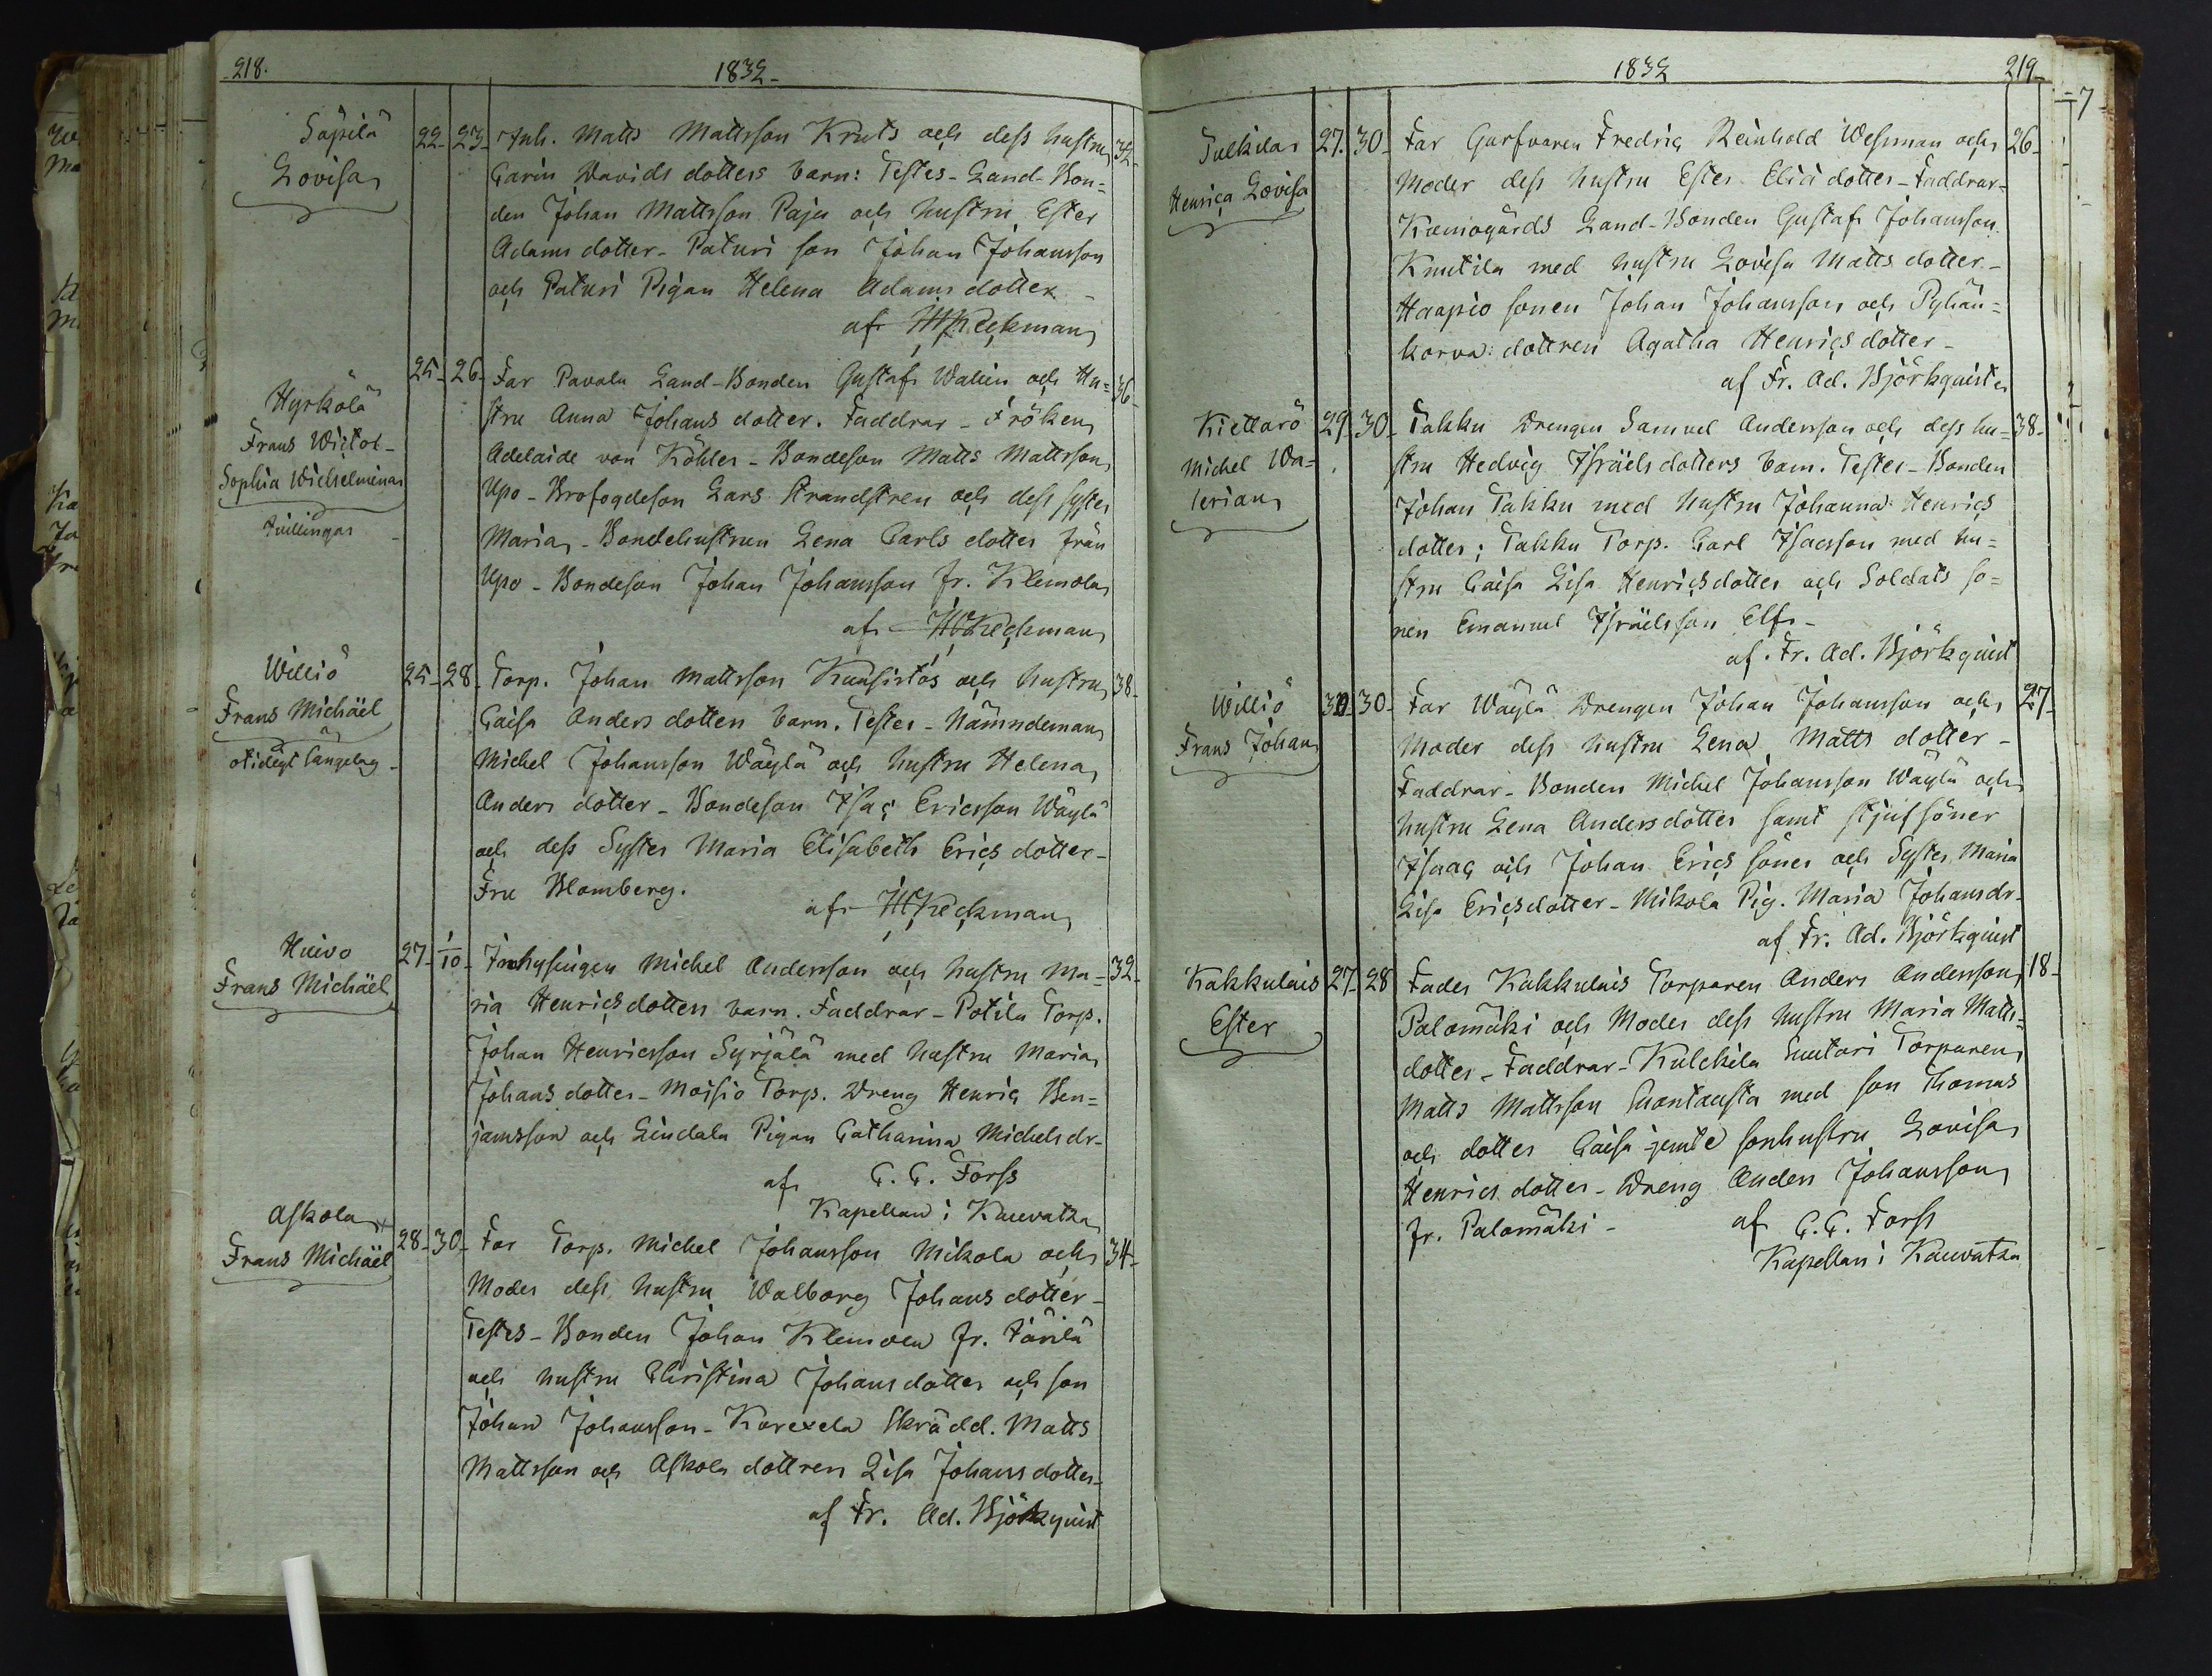 218.
1832.
Säpilä
Lovisa
22. 23. Inh. Matts Mattsson Knuts och dess hustru 32.
Carin Davids dotters barn: Testes - Land-Bon=
den Johan Mattsson Paju och hustru Ester
Adams dotter - Paturi son Johan Johansson
och Paturi Pigan Helena Adams dotter -
af Keckman
Hyrkölä
Frans Wictor -
Sophia Wilhelmina
tvillingar
25. 26. Far Pavola Land-Bonden Gustaf Walin och Hu= 36.
stru Anna Johans dotter. Faddrar - Fröken
Adelaide von Köhler - Bondeson Matts Mattsson
Upo - Brofogdeson Lars Strandstren och dess syster
Maria - Bondehustrun Lena Carls dotter från
Upo - Bondeson Johan Johansson fr. Klemola
af Keckman
Williö
Frans Michäel
otidigt sängelag -
25. 28. Torp. Johan Mattsson Kuusistos och hustru 38.
Caisa Anders dotters barn. Testes - Nämndeman
Michel Johansson Wäylä och hustru Helena
Anders dotter - Bondeson Isac Ericsson Wäylä
och dess Syster Maria Elisabeth Erics dotter -
Fru Blomberg.
af Keckman
Huivo
Frans Michäel
27. 1/10. Inhysingen Michel Andersson och hustru Ma= 32.
ria Henricsdotters barn. Faddrar - Potila Torp.
Johan Henricsson Syrjälä med hustru Maria
Johans dotter - Moisio Torp. Dreng Henric Ben=
jamsson och Lindala Pigan Catharina Michelsdr -
af C. C. Forss
Kapellan i Kauvatsa
Askola
Frans Michäel
28. 30. Far Torp. Michel Johansson Mikola och 34.
Moder dess hustru Walborg Johans dotter -
Testes - Bonden Johan Klemola fr. Färilä
och hustru Christina Johans dotter och son
Johan Johansson - Karexela Skrädd. Matts
Mattsson och Askola dottren Lisa Johans dotter -
af Fr. Ad. Björkquist
1832
219.
7
Tulkila
Henrica Lovisa
27. 30. Far Garfvaren Fredric Reinhold Wessman och 26.
Moder dess hustru Ester Elia dotter - Faddrar -
Kamnogårds Land-Bonden Gustaf Johansson
Knutila med hustru Lovisa Matts dotter -
Haapio sonen Johan Johansson och Pyhän=
korva dottren Agatha Henrics dotter -
af Fr. Ad. Björkquist
Kiettarö
Michel Wa=
lerian
29. 30. Takku Drengen Samuel Andersson och dess hu= 38.
stru Hedvig Isräels dotters barn. Testes - Bonden
Johan Takku med hustru Johanna Henrics
dotter; Takku Torp. Carl Isacsson med hu=
stru Caisa Lisa Henricsdotter och Soldats so=
nen Emanuel Isräelsson Elf -
af Fr. Ad. Björkquist
Williö
Frans Johan
30. 30. Far Wäylä Drengen Johan Johansson och 27.
Moder dess hustru Lena Matts dotter -
Faddrar - Bonden Michel Johansson Wäylä och
hustru Lena Andersdotter samt stjufsöner
Isaac och Johan Erics söner och Syster Maria
Lisa Ericsdotter - Mikola Pig. Maria Johansdr.
af Fr. Ad. Björkquist
Kakkulais
Ester
27. 28 Fader Kakkulais Torparen Anders Andersson 18.
Palomäki och Moder dess hustru Maria Matts=
dotter - Faddrar - Kulckila Suutari Torparen
Matts Mattsson Suontausta med son Thomas
och dotter Caisa jemte sonhustru Lovisa
Henrics dotter - Dreng Anders Johansson
fr. Palomäki - af C. C. Forss
Kapellan i Kauvatsa